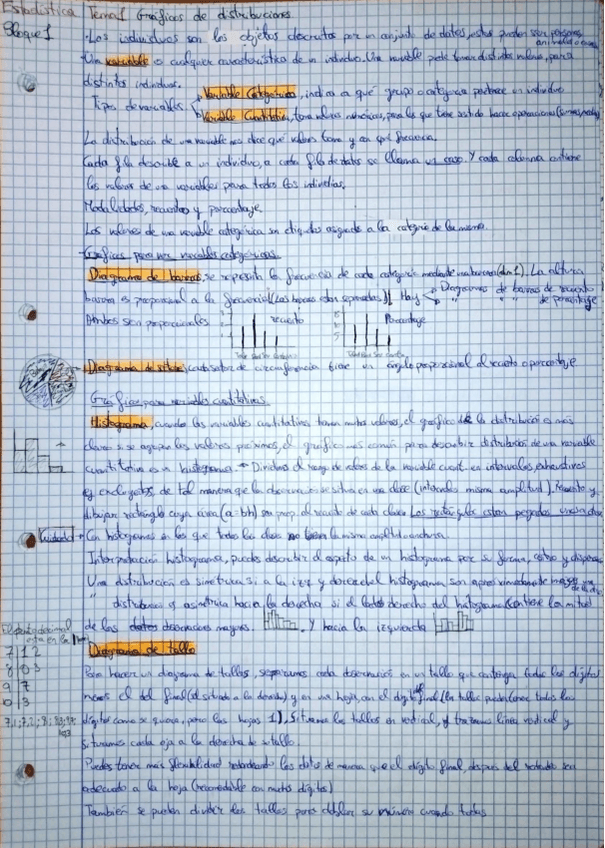 Estadística Tema 1 Gráficos de distribuciones
Bloque 1
• Los individuos son los objetos descritos por un conjunto de datos, estos pueden ser personas, animales o cosas
Una variable es cualquier característica de un individuo. Una variable puede tomar distintos valores, para
distintos individuos.
Variable Categórica, indica a qué grupo o categoría pertenece un individuo
Tipos de variables
Variable Cuantitativa, toma valores numéricos, para los que tiene sentido hacer operaciones
La distribución de una variable nos dice qué valores toma y con qué frecuencia.
Cada fila describe a un individuo, a cada fila de datos se llama un caso. Y cada columna contiene
los valores de una variable para todos los individuos.
Modalidades, recuento y porcentaje
Los valores de una variable categórica son etiquetas asignadas a las categorías de la misma.
Gráficos para variables categóricas
Diagrama de barras, se representa la frecuencia de cada categoría mediante una barra La altura
barra es proporcional a la frecuencia (Las barras van separadas) Hay Diagramas de barras de recuento
" " " de porcentaje
Ambos son proporcionales recuento Porcentaje
Diagrama de sectores, cada sector de circunferencia tiene un ángulo proporcional al recuento o porcentaje
Gráficos para variables cuantitativas
Histograma, cuando las variables cuantitativas toman muchos valores, el gráfico de la distribución es más
claro si se agrupan los valores próximos, el gráfico más común para describir distribución de una variable
cuantitativa es un histograma. → Dividimos el rango de valores de la variable cuant. en intervalos, exhaustivos
y excluyentes, de tal manera que la observación se sitúa en una clase (intervalos misma amplitud). Recuento y
dibujar rectángulo cuya área (a = b·h) sea prop. al recuento de cada clase. Los rectángulos están pegados
Cuidado → Con histogramas en los que todas las clases no tienen la misma amplitud
Interpretación histograma, puedes describir el aspecto de un histograma por su forma, centro y dispersión
Una distribución es simétrica si a la izq y derecha del histograma son aproximadamente
" distribución es asimétrica hacia la derecha si el lado derecho del histograma contiene la mitad
de las observaciones mayores. Y hacia la izquierda
El punto decimal
Diagrama de tallo
7|1 2
8|0 3
9|7
10|3
Para hacer un diagrama de tallos, separamos cada observación en un tallo que contenga todos los dígitos
menos el del final (el situado a la derecha) y en una hoja, con el dígito final
7,1; 7,2; 8; 8,3; 9,7
10,3
dígitos como se quiera, pero las hojas 1). Situamos los tallos en vertical, y trazamos línea vertical y
situamos cada hoja a la derecha de su tallo.
Puedes tener más flexibilidad redondeando los datos de manera que el dígito final, después del redondeo sea
adecuado a la hoja (recomendable con muchos dígitos)
También se pueden dividir los tallos para doblar su número cuando todas